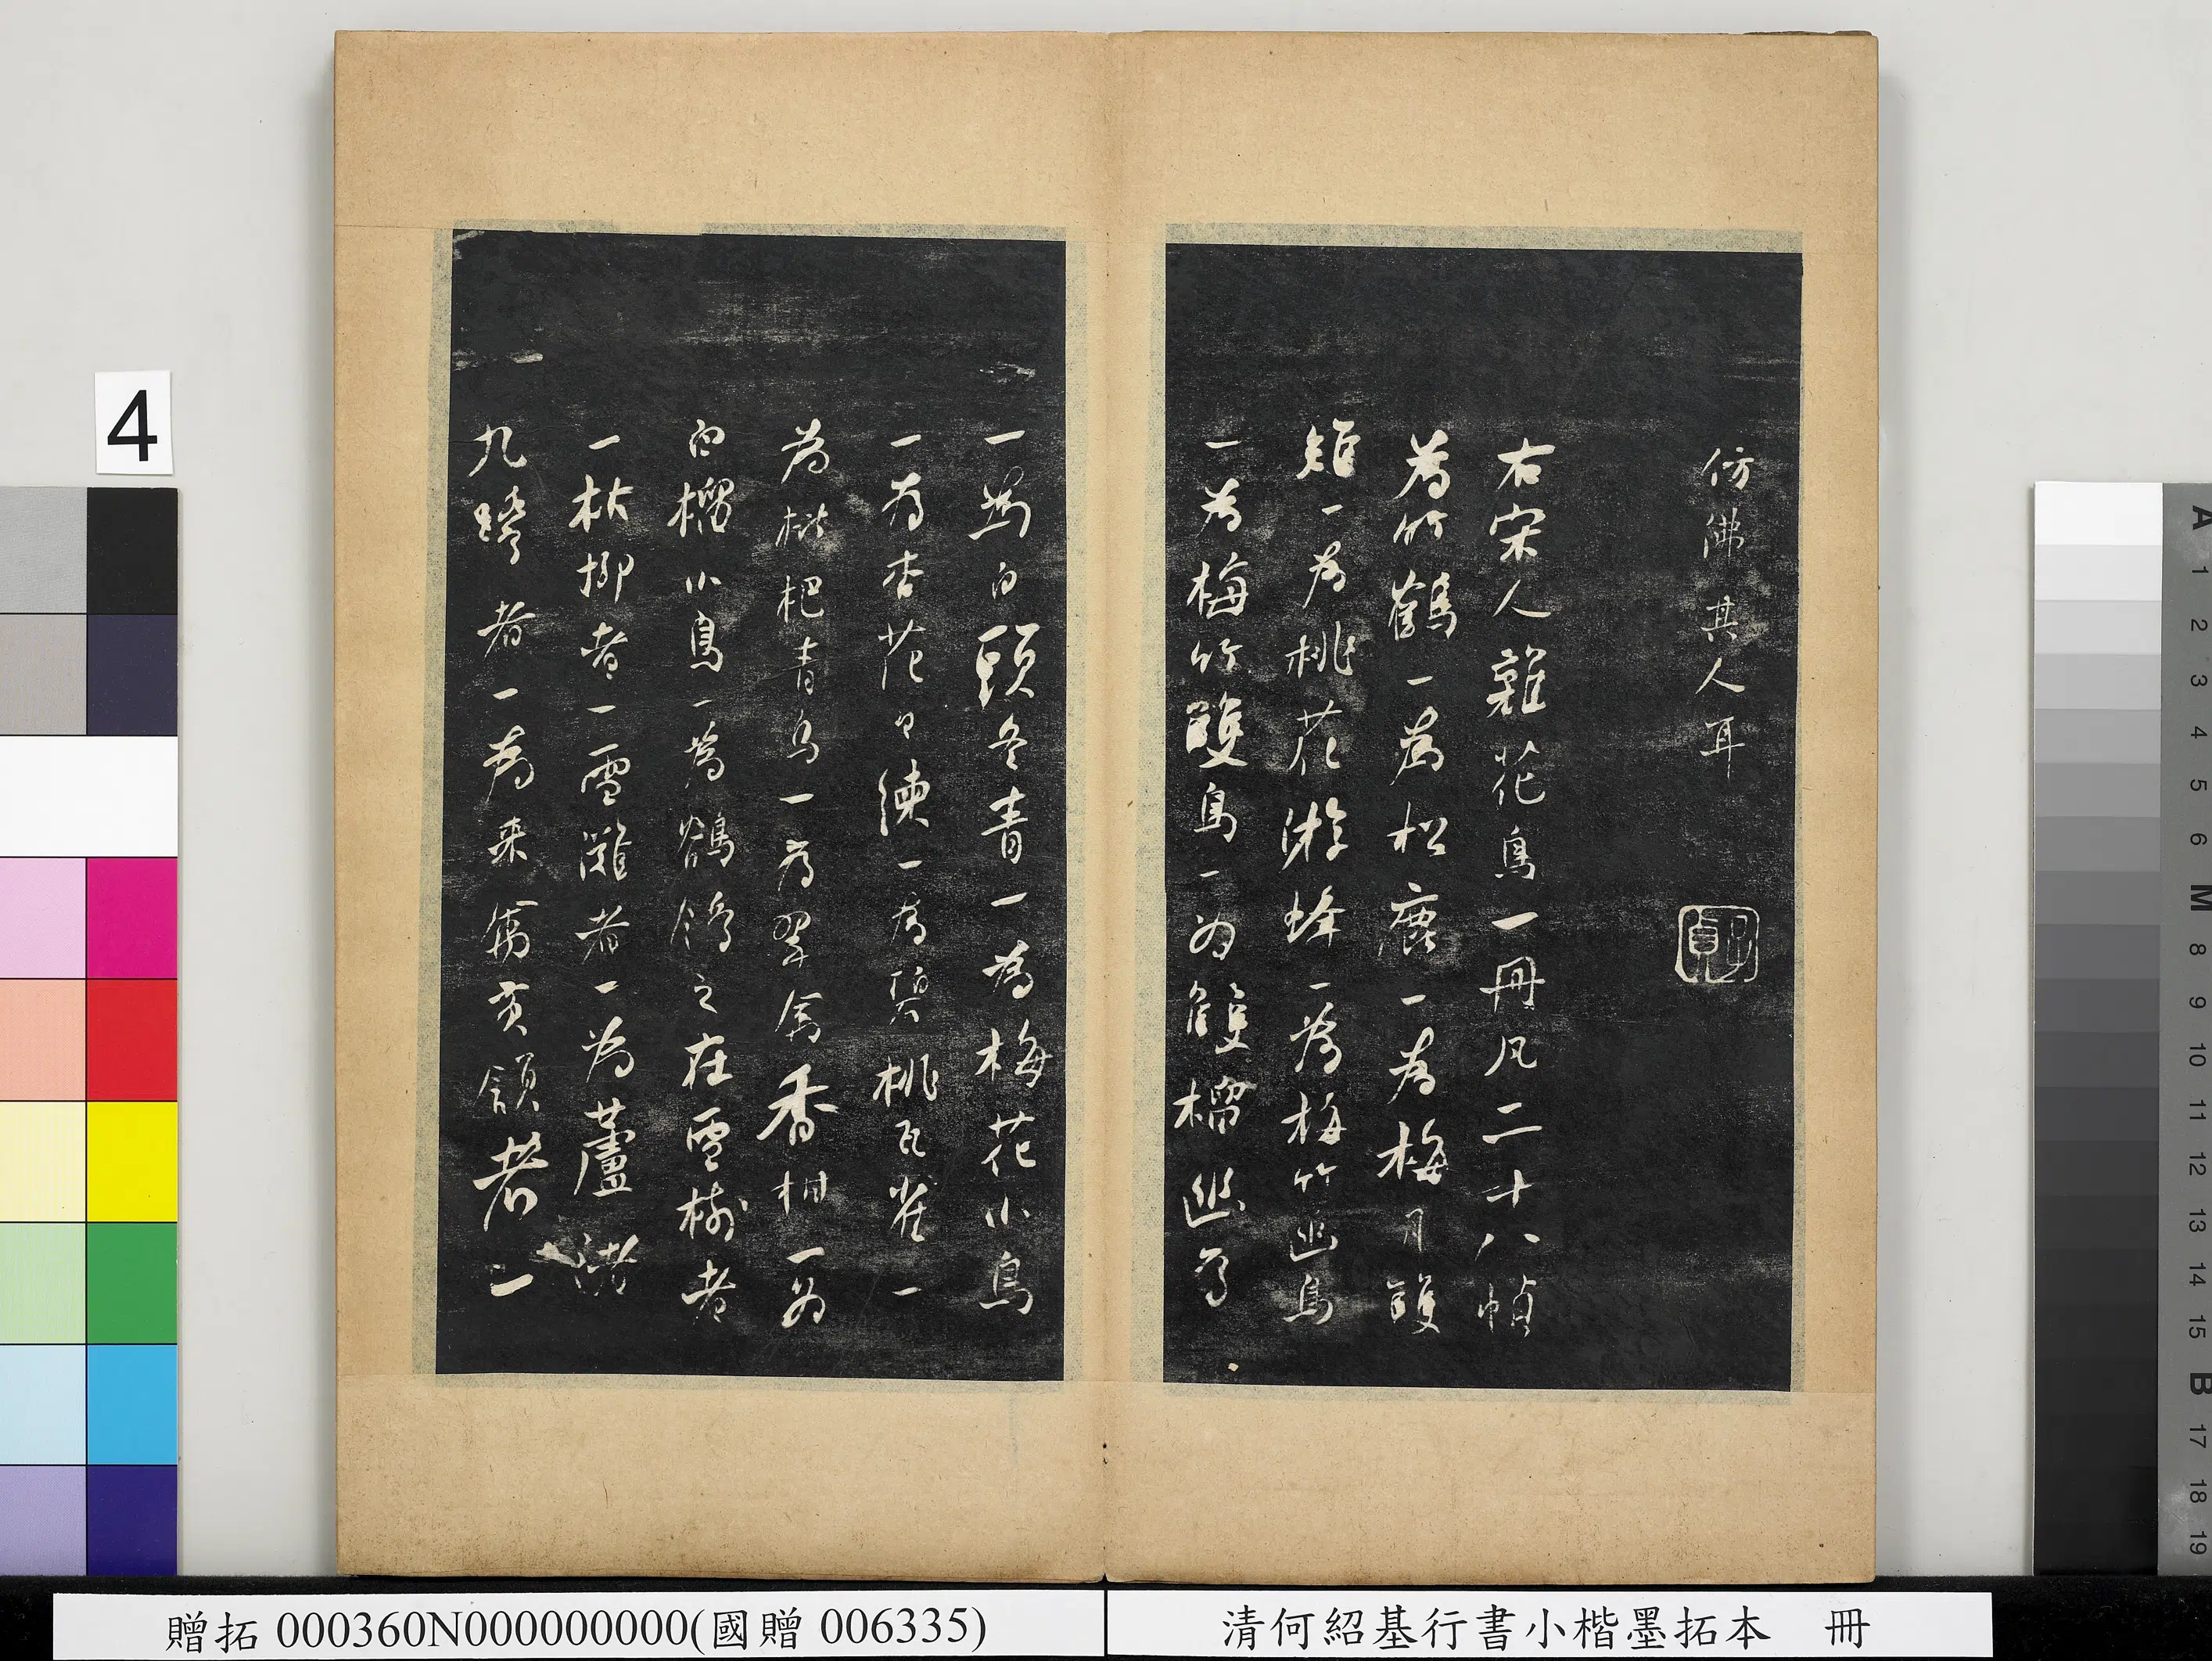 仿佛其人耳
子貞
右宋人雜花鳥一冊凡二十八幀
為竹鶴一為松鹿一為梅月雙
雉一為桃花游蜂一為梅竹幽鳥
一為梅竹雙鳥一為雙榴幽鳥
一為白頭冬青一為梅花小鳥
一為杏花白練一為碧桃瓦雀一
為枇杷青鳥一為翠禽香柑一為
白榴小鳥一為鶺鴒之在雪樹者
一枯柳者一雪灘者一為蘆渚
九鷺者一為來禽交頸者一
4
贈拓 000360N000000000(國贈 006335)
清何紹基行書小楷墨拓本 冊
A 1 2 3 4 5 6 M 8 9 10 11 12 13 14 15 B 17 18 19